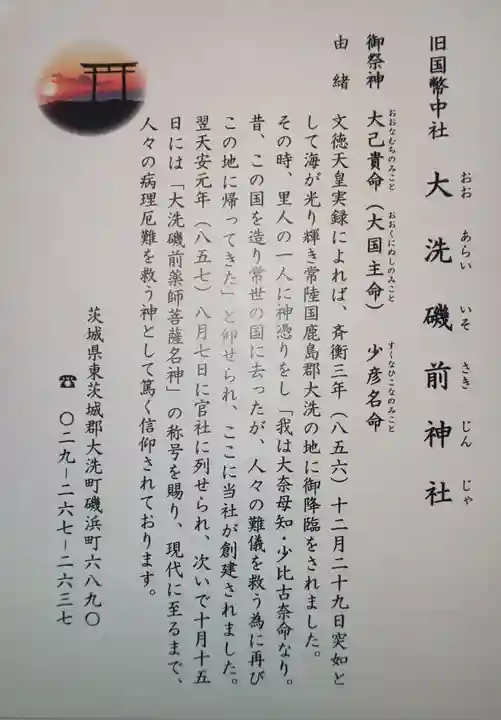 旧国幣中社 大洗磯前神社
おお あらい いそ さき じん じゃ
御祭神 大己貴命（大国主命） 少彦名命
おおなむちのみこと おおくにぬしのみこと すくなひこなのみこと
由緒 文徳天皇実録によれば、斉衡三年（八五六）十二月二十九日突如と
して海が光り輝き常陸国鹿島郡大洗の地に御降臨をされました。
その時、里人の一人に神憑りをし「我は大奈母知・少比古奈命なり。
昔、この国を造り常世の国に去ったが、人々の難儀を救う為に再び
この地に帰ってきた」と仰せられ、ここに当社が創建されました。
翌天安元年（八五七）八月七日に官社に列せられ、次いで十月十五
日には「大洗磯前薬師菩薩名神」の称号を賜り、現代に至るまで、
人々の病理厄難を救う神として篤く信仰されております。
茨城県東茨城郡大洗町磯浜町六八九〇
☎ 〇二九－二六七－二六三七